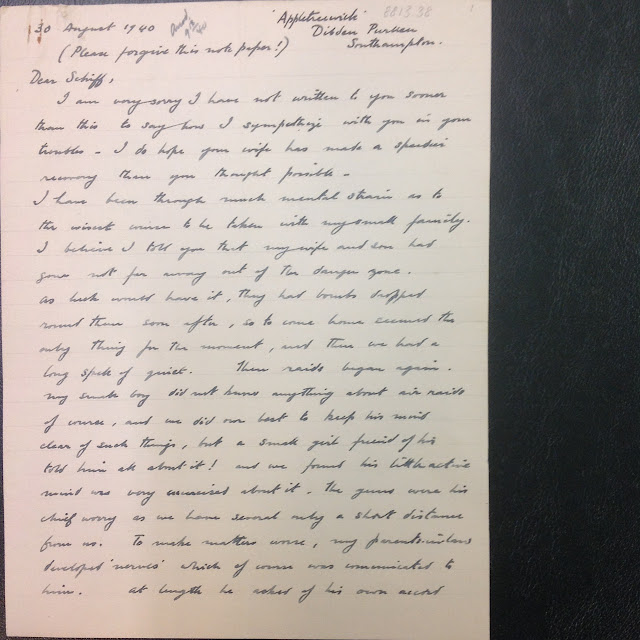 8813.38
1
'Appletreewick'
30 August 1940
Dibden Purlieu
(Please forgive this note paper!) Southampton.
Dear Schiff,
I am very sorry I have not written to you sooner
than this to say how I sympathize with you in your
troubles – I do hope your wife has made a speedier
recovery than you thought possible –
I have been through much mental strain as to
the wisest course to be taken with my small family.
I believe I told you that my wife and son had
gone not far away out of the danger zone.
as luck would have it, they had bombs dropped
round them soon after, so to come home seemed the
only thing for the moment, and then we had a
long spell of quiet. Then raids began again.
my small boy did not know anything about air raids
of course, and we did our best to keep his mind
clear of such things, but a small girl friend of his
told him all about it! and we found his little active
mind was very exercised about it. The guns were his
chief worry as we have several only a short distance
from us. To make matters worse, my parents-in-law
developed 'nerves' which of course was communicated to
him. at length he asked of his own accord